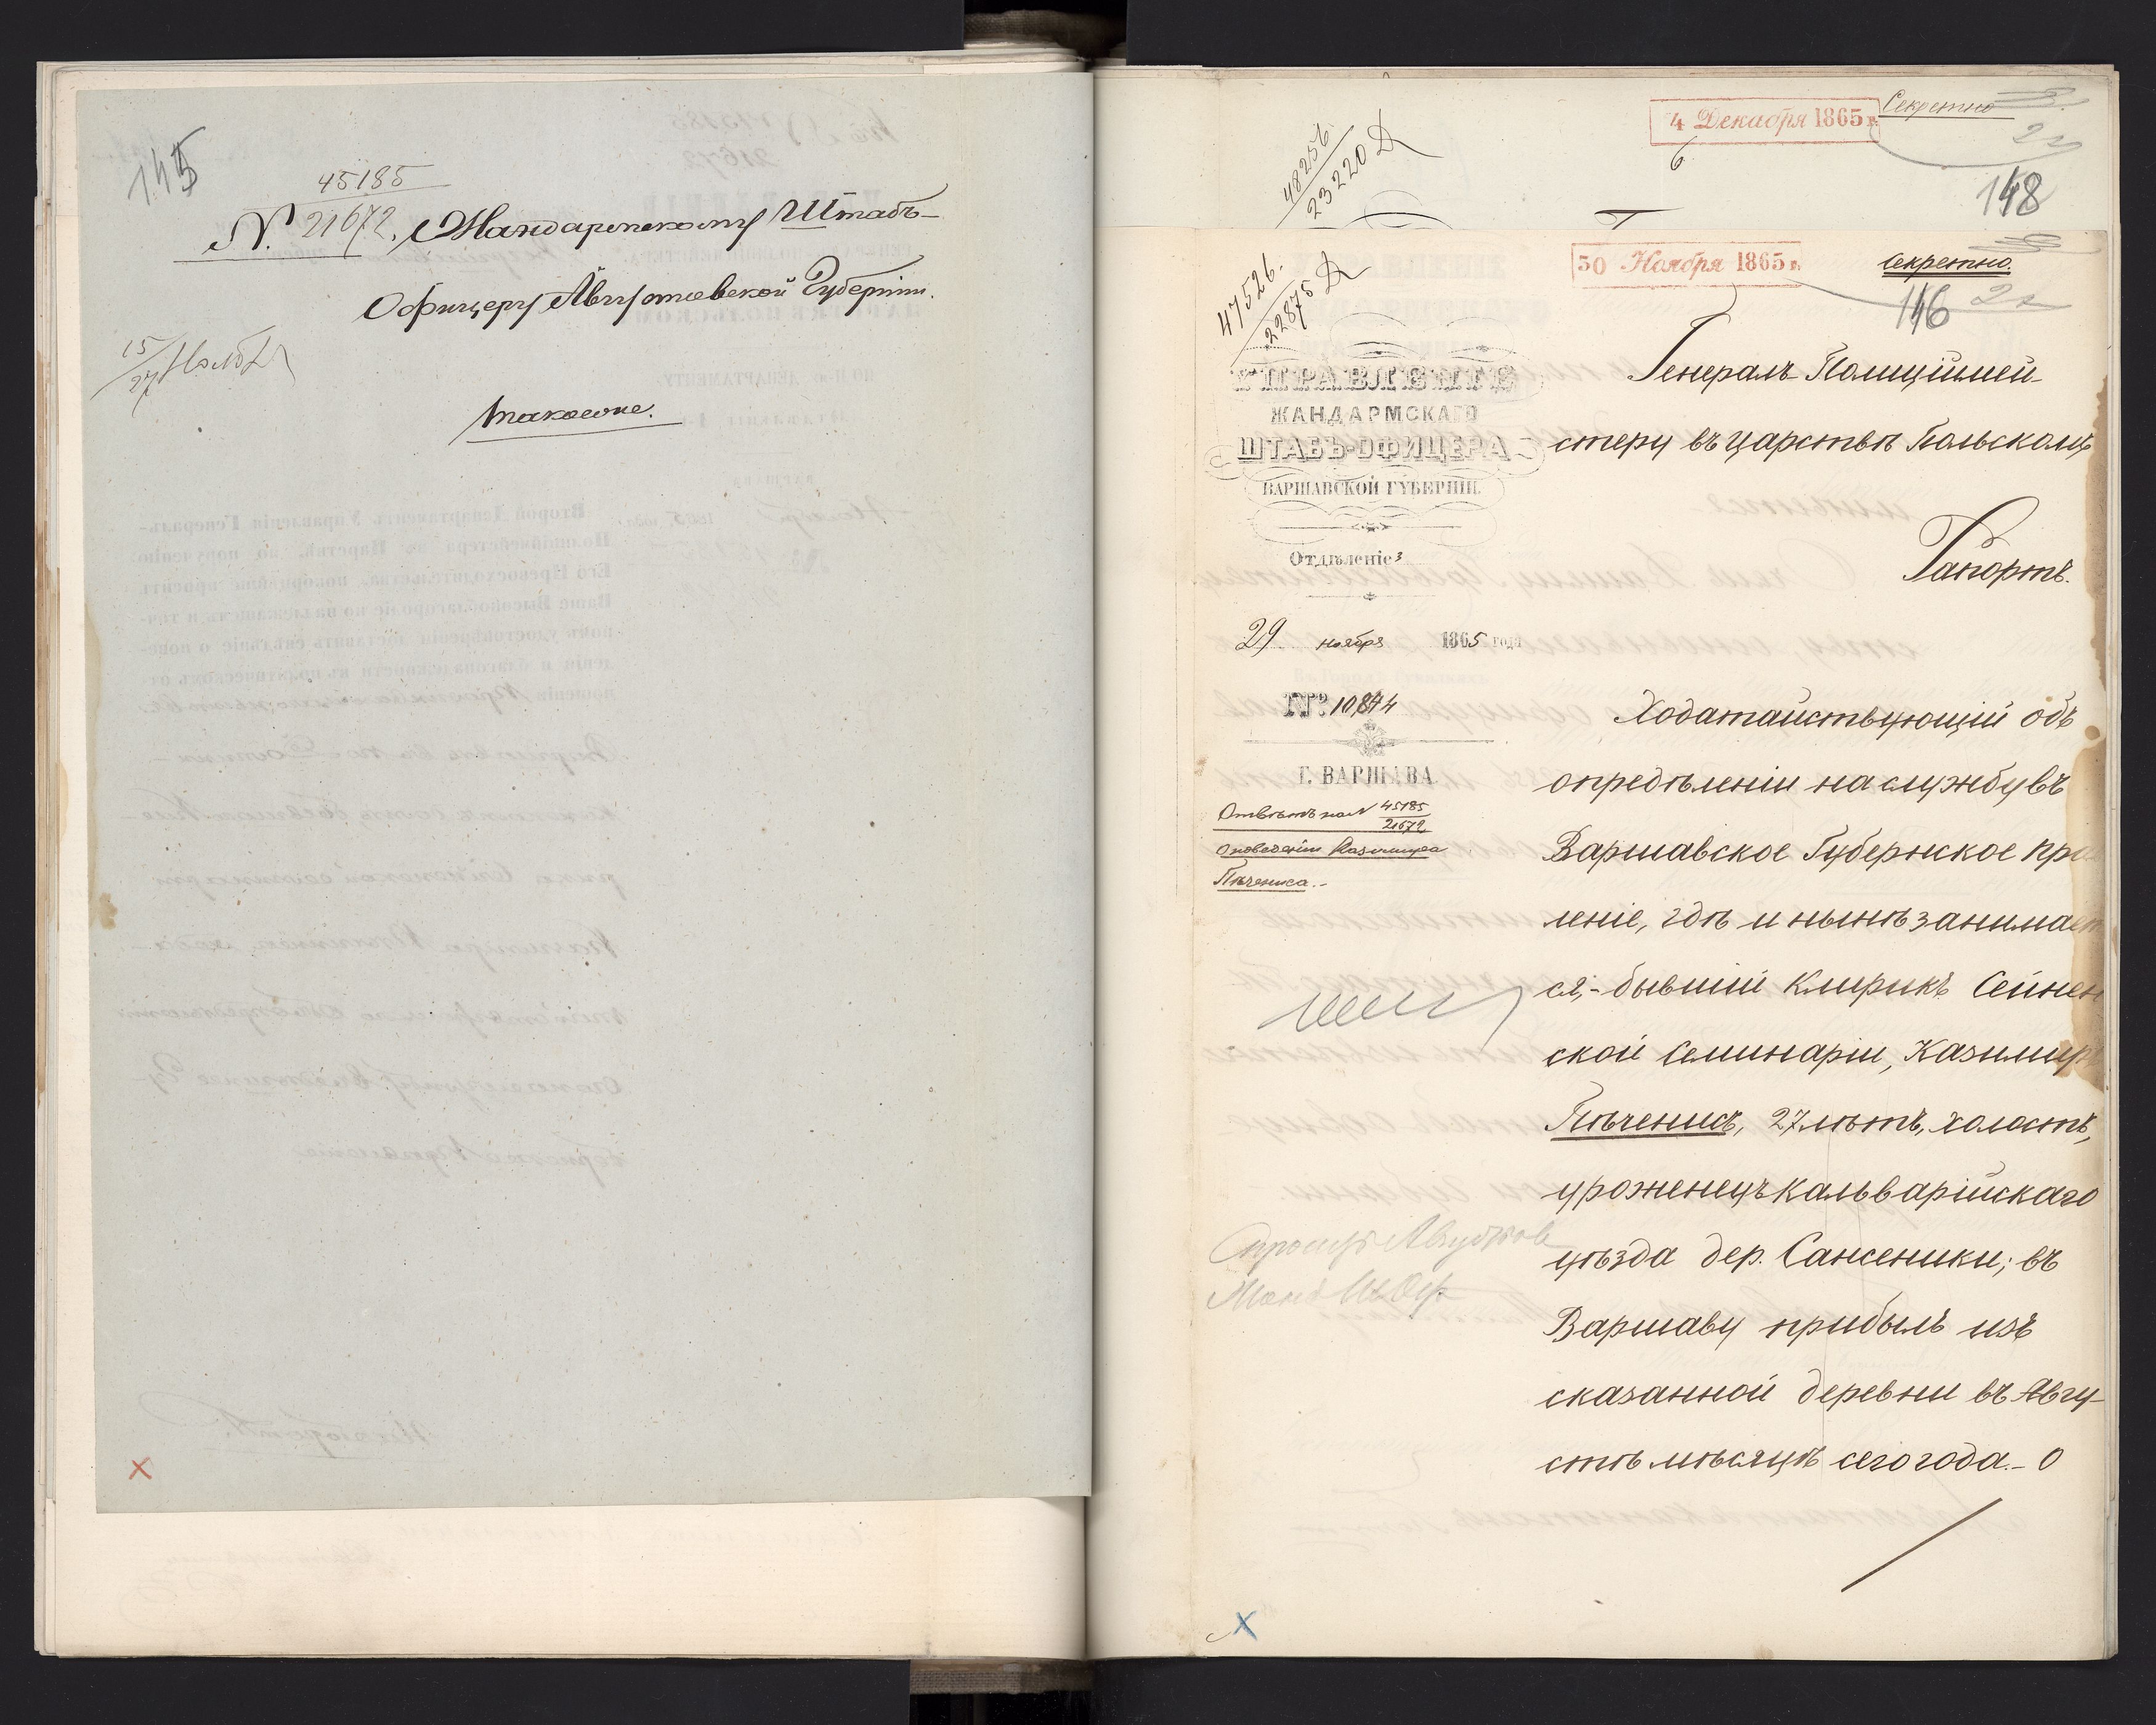 145
45185
№ 21672. Жандармскому Штабъ-
Офицеру Августовской Губерніи.
15/27 Нояб
таковоже.
4 Декабря 1865 г.
Секретно
48256
23220 Д
6
148
30 Ноября 1865 г.
Секретно.
47526.
22875 Д
146
УПРАВЛЕНІЕ
ЖАНДАРМСКАГО
ШТАБЪ-ОФИЦЕРА
ВАРШАВСКОЙ ГУБЕРНІИ.
Отдѣленіе 3
29 ноября 1865 года
№ 10,874
Г. ВАРШАВА.
Отвѣтъ на № 45185
21672
о поведеніи Казимира
Пѣчениса.-
Генералъ-Полиціймей-
стеру въ Царствѣ Польскомъ
Рапортъ.
Ходатайствующій объ
опредѣленіи на службу въ
Варшавское Губернское Пра
леніе, гдѣ и нынѣ занимает
ся,- бывшій Клирикъ Сейнен
ской Семинаріи, Казимиръ
Пѣченисъ, 27 лѣтъ, холостъ,
уроженецъ Кальварійскаго
уѣзда дер. Сансеники; въ
Варшаву прибылъ изъ
сказанной деревни въ Авгу-
стѣ мѣсяцѣ сего года.- О